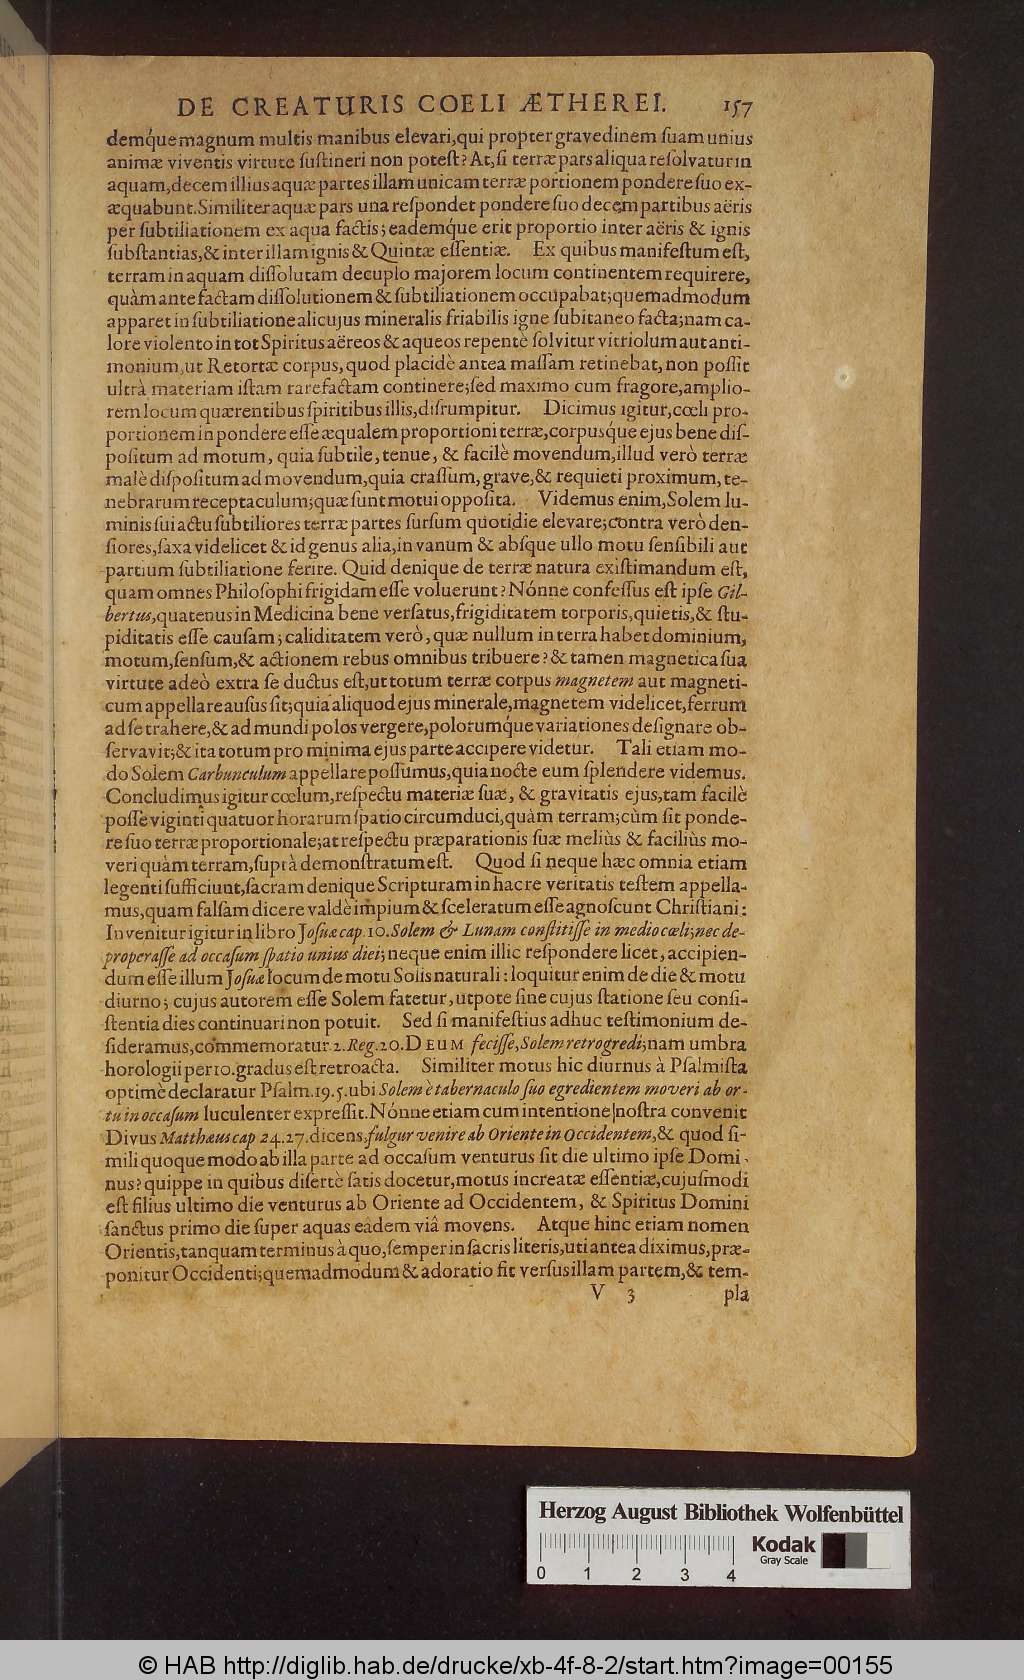 DE CREATURIS COELI ÆTHEREI. 157
demq́ue magnum multis manibus elevari, qui propter gravedinem ſuam unius
animæ viventis virtute ſuſtineri non poteſt? At, ſi terræ pars aliqua reſolvatur in
aquam, decem illius aquæ partes illam unicam terræ portionem pondere ſuo ex-
æquabunt. Similiter aquæ pars una reſpondet pondere ſuo decem partibus aëris
per ſubtiliationem ex aqua factis; eademq́ue erit proportio inter aëris & ignis
ſubſtantias, & inter illam ignis & Quintæ eſſentiæ. Ex quibus manifeſtum eſt,
terram in aquam diſſolutam decuplo majorem locum continentem requirere,
quàm ante factam diſſolutionem & ſubtiliationem occupabat; quemadmodum
apparet in ſubtiliatione alicujus mineralis friabilis igne ſubitaneo facta; nam ca-
lore violento in tot Spiritus aëreos & aqueos repentè ſolvitur vitriolum aut anti-
monium, ut Retortæ corpus, quod placidè antea maſſam retinebat, non poſſit
ultrà materiam iſtam rarefactam continere; ſed maximo cum fragore, amplio-
rem locum quærentibus ſpiritibus illis, diſrumpitur. Dicimus igitur, cœli pro-
portionem in pondere eſſe æqualem proportioni terræ, corpusq́ue ejus bene diſ-
poſitum ad motum, quia ſubtile, tenue, & facilè movendum, illud verò terræ
malè diſpoſitum ad movendum, quia craſſum, grave, & requieti proximum, te-
nebrarum receptaculum; quæ ſunt motui oppoſita. Videmus enim, Solem lu-
minis ſui actu ſubtiliores terræ partes ſurſum quotidie elevare; contra verò den-
ſiores, ſaxa videlicet & id genus alia, in vanum & abſque ullo motu ſenſibili aut
partium ſubtiliatione ferire. Quid denique de terræ natura exiſtimandum eſt,
quam omnes Philoſophi frigidam eſſe voluerunt? Nónne confeſſus eſt ipſe Gil-
bertus, quatenus in Medicina bene verſatus, frigiditatem torporis, quietis, & ſtu-
piditatis eſſe cauſam; caliditatem verò, quæ nullum in terra habet dominium,
motum, ſenſum, & actionem rebus omnibus tribuere? & tamen magnetica ſua
virtute adeò extra ſe ductus eſt, ut totum terræ corpus magnetem aut magneti-
cum appellare auſus ſit; quia aliquod ejus minerale, magnetem videlicet, ferrum
ad ſe trahere, & ad mundi polos vergere, polorumq́ue variationes deſignare ob-
ſervavit; & ita totum pro minima ejus parte accipere videtur. Tali etiam mo-
do Solem Carbunculum appellare poſſumus, quia nocte eum ſplendere videmus.
Concludimus igitur cœlum, reſpectu materiæ ſuæ, & gravitatis ejus, tam facilè
poſſe viginti quatuor horarum ſpatio circumduci, quàm terram; cùm ſit ponde-
re ſuo terræ proportionale; at reſpectu præparationis ſuæ meliùs & faciliùs mo-
veri quàm terram, ſuprà demonſtratum eſt. Quod ſi neque hæc omnia etiam
legenti ſufficiunt, ſacram denique Scripturam in hac re veritatis teſtem appella-
mus, quam falſam dicere valdè impium & ſceleratum eſſe agnoſcunt Chriſtiani:
Invenitur igitur in libro Joſuæ cap. 10. Solem & Lunam conſtitiſſe in medio cœli; nec de-
properaſſe ad occaſum ſpatio unius diei; neque enim illic reſpondere licet, accipien-
dum eſſe illum Joſuæ locum de motu Solis naturali: loquitur enim de die & motu
diurno; cujus autorem eſſe Solem fatetur, utpote ſine cujus ſtatione ſeu conſi-
ſtentia dies continuari non potuit. Sed ſi manifeſtius adhuc teſtimonium de-
ſideramus, commemoratur 2. Reg. 20. DEUM feciſſe, Solem retrogredi; nam umbra
horologii per 10. gradus eſt retroacta. Similiter motus hic diurnus à Pſalmiſta
optimè declaratur Pſalm. 19. 5. ubi Solem è tabernaculo ſuo egredientem moveri ab or-
tu in occaſum luculenter expreſſit. Nónne etiam cum intentione noſtra convenit
Divus Matthæus cap 24. 27. dicens, fulgur venire ab Oriente in Occidentem, & quod ſi-
mili quoque modo ab illa parte ad occaſum venturus ſit die ultimo ipſe Domi-
nus? quippe in quibus diſertè ſatis docetur, motus increatæ eſſentiæ, cujuſmodi
eſt filius ultimo die venturus ab Oriente ad Occidentem, & Spiritus Domini
ſanctus primo die ſuper aquas eâdem viâ movens. Atque hinc etiam nomen
Orientis, tanquam terminus à quo, ſemper in ſacris literis, uti antea diximus, præ-
ponitur Occidenti; quemadmodum & adoratio fit verſus illam partem, & tem-
V 3 pla
Herzog August Bibliothek Wolfenbüttel
Kodak
Gray Scale
0 1 2 3 4
© HAB http://diglib.hab.de/drucke/xb-4f-8-2/start.htm?image=00155